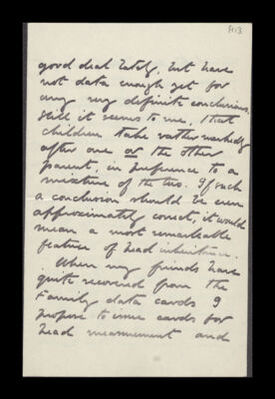 good deal lately, but have
not data enough yet for
any very definite conclusions.
Still it seems to me, that
children take rather markedly
after one or the other
parent, in preference to a
mixture of the two. If such
a conclusion should be even
approximately correct, it would
mean a most remarkable
feature of head inheritance.
When my friends have
quite recovered from the
Family data cards I
propose to issue cards for
head measurement and